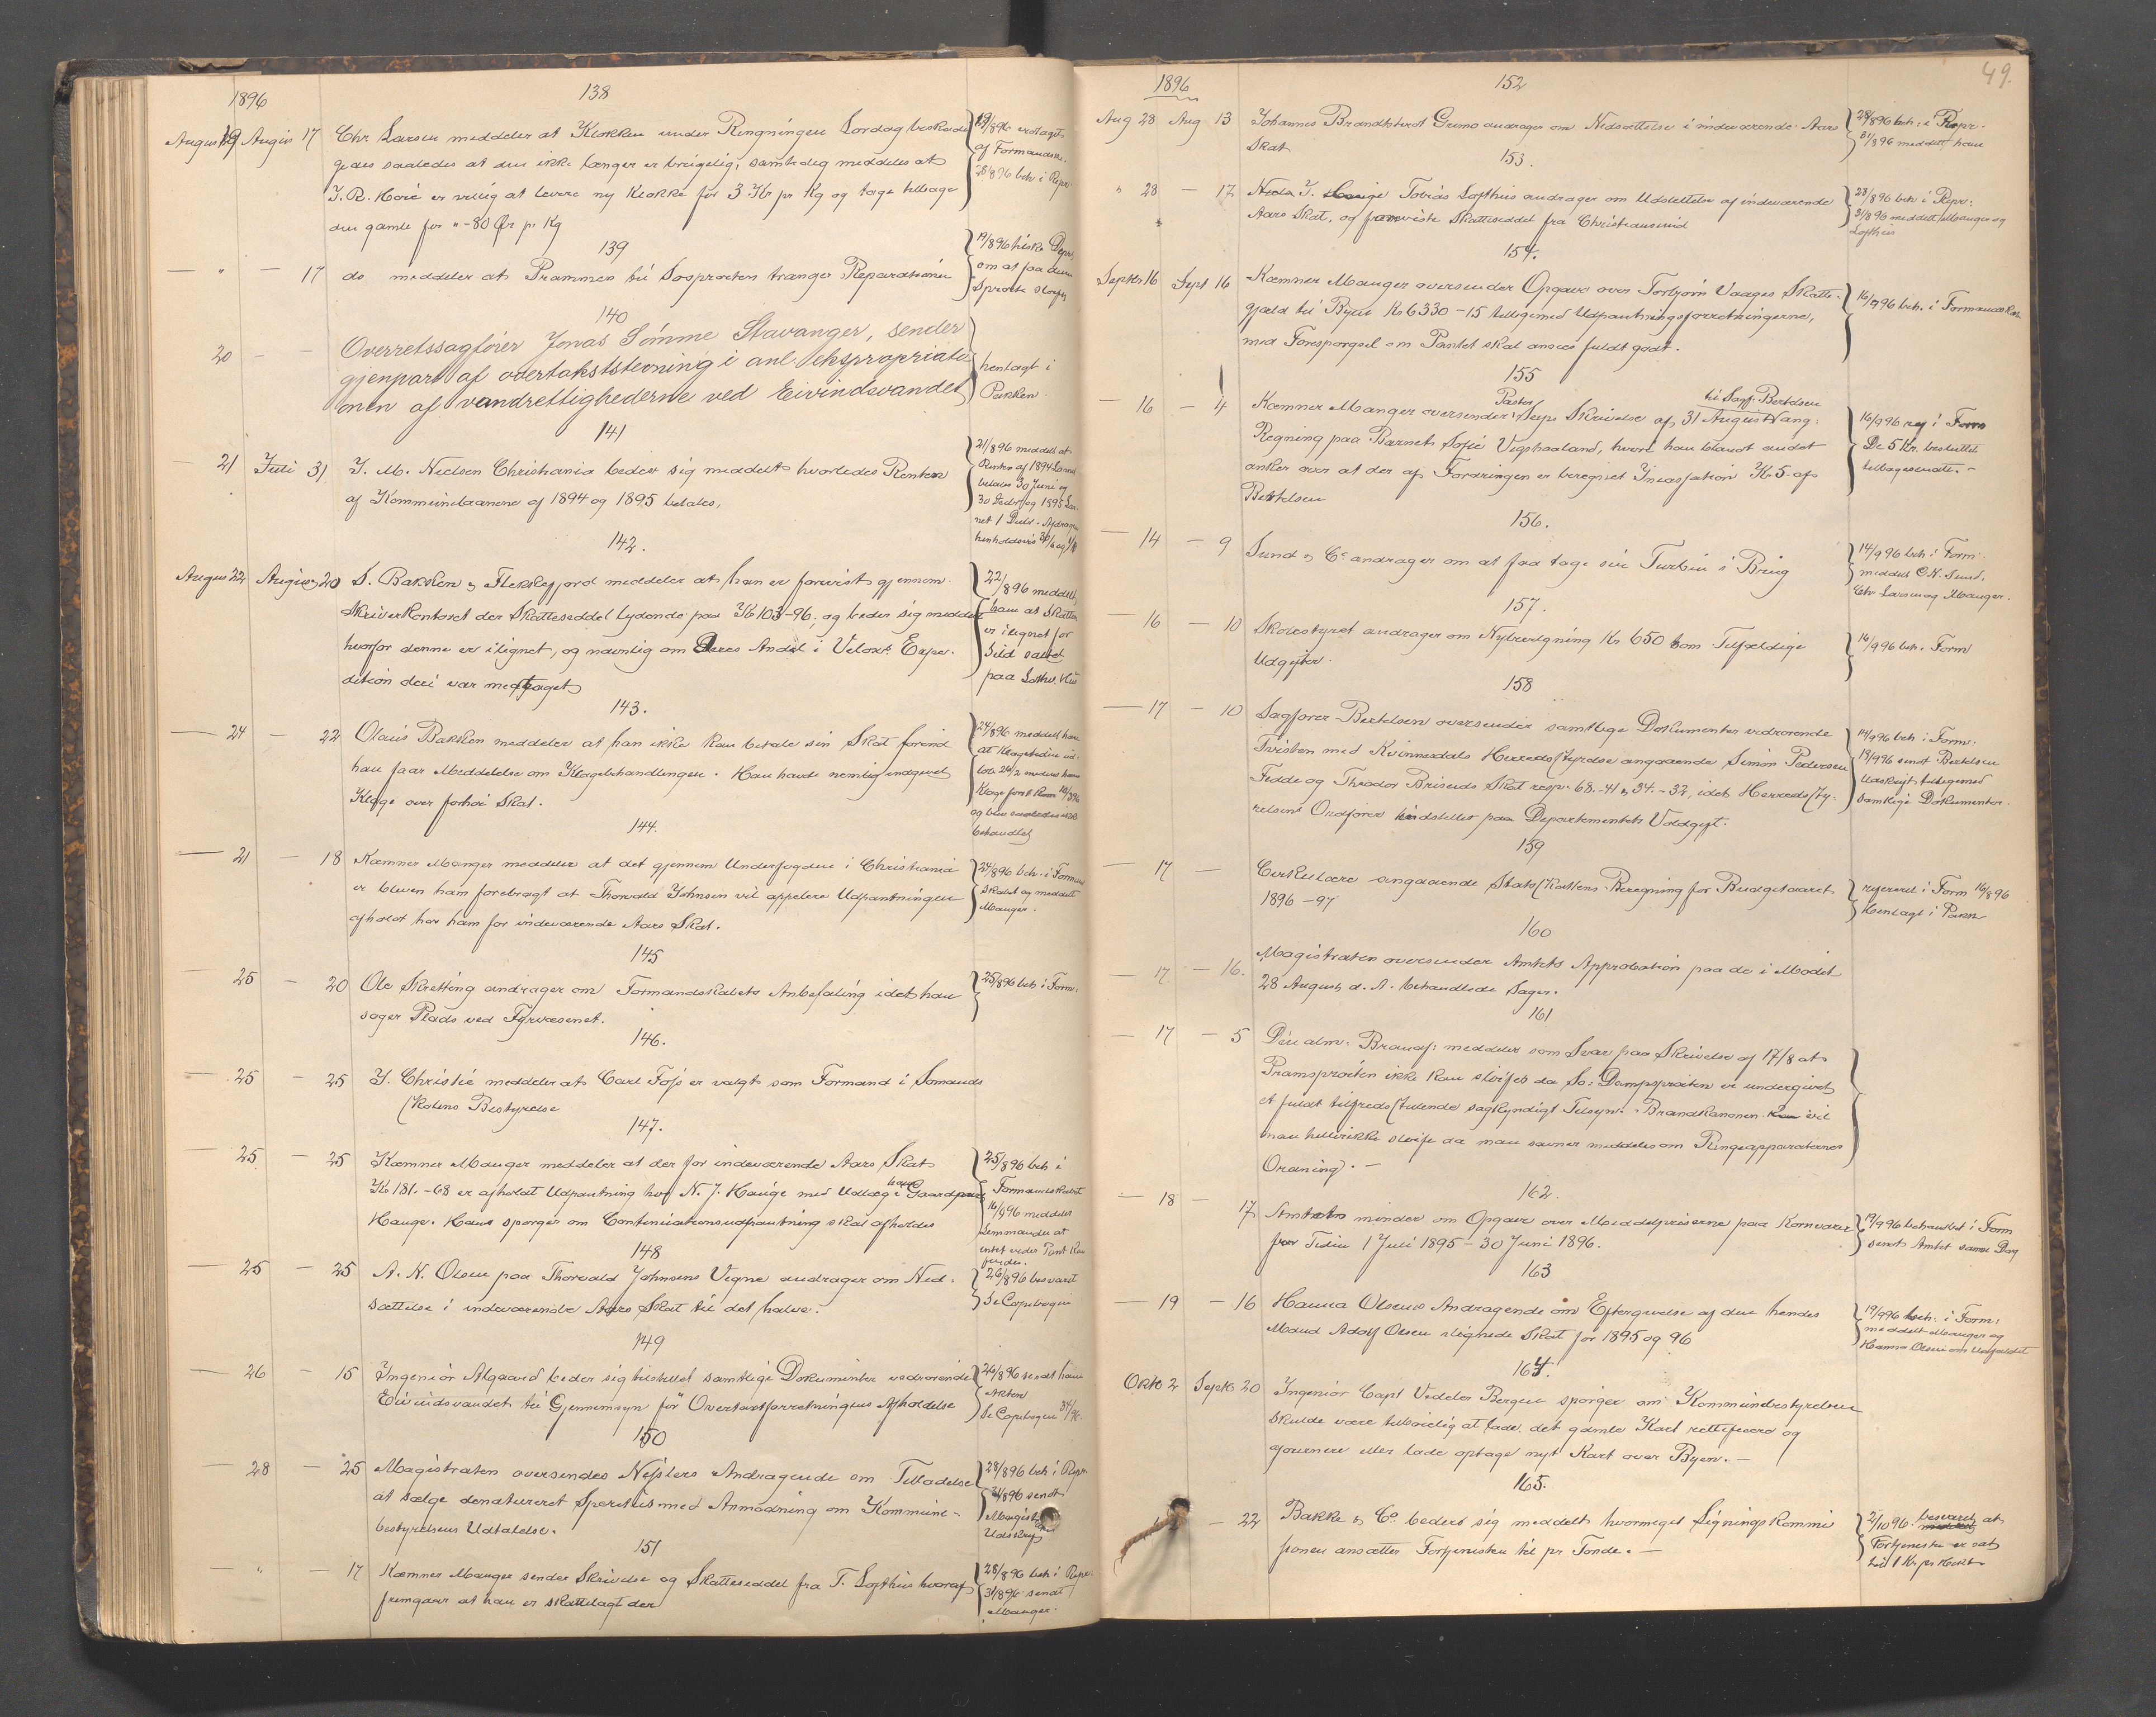 1896
138
August 19 August 17 Chr. Larsen meddeler at Klokken under Ringningen Lordag beskadi
gedes saaledes at den ikke længer er brugelig, samtidig meddeles at
J. R. Høie er villig at levere ny Klokke for 3 Kr pr Kg og tage tilbage
den gamle for " -80 Øre pr Kg
19/896 vedtaget
af Formandsk.
28/896 beh i Repr.
139
— " — 17 do meddeler at Prammen til Søsprøiten trænger Reparation
om at faa denne
Sprøite sløifet
140
20 — — Overretssagfører Jonas Sømme Stavanger, sender
gjenpart af overtakststevning i anl ekspropriati
onen af vandrettighederne ved Eivindsvandet
henlagt i
Pakken.
141
— 21 Juli 31 J. M. Nielsen Christiania beder sig meddelt hvorledes Renten
af Kommunelaanene af 1894 og 1895 betales,
21/896 meddelt at
Renten af 1894 Laanet
betales 30 Juni og
30 Decbr og 1895 Laa
net 1 Decbr. Afdrag
henholdsvis
142.
August 22 August 20 S. Bakken & Flekkefjord meddeler at han er forevist gjennem
Skriverkontoret der Skatteseddel lydende paa Kr 103-96, og beder sig meddelt
hvorfor denne er ilignet, og navnlig om Deres Andel i Velox's Expe-
dition deri var medtaget
22/896 meddelt
ham at Skatten
er ilignet for
Sild saltet
paa
143.
— 24 — 22 Olaus Bakken meddeler at han ikke kan betale sin Skat førend
han faar Meddelelse om Klagebehandlingen. Han havde nemlig indgivet
Klage over forhøi Skat.
24/896 meddelt ham
at Klagetiden ud-
løb 24/2 medens hans
Klage først kom
og blev saaledes ikke
behandlet
144.
— 21 — 18 Kæmner Manger meddeler at det gjennem Underfogden i Christiania
er bleven ham forebragt at Thorvald Johnsen vil appelere Udpantningen
afholdt hos ham for indeværende Aars Skat.
24/896 beh. i Formand
skabet og meddelt
Manger.
145
— 25 — 20 Ole Skretting andrager om Formandskabets Anbefaling idet han
søger Plads ved Fyrvæsenet.
25/896 beh i Form.
146.
— 25 — 25 J. Christie meddeler at Carl Foss er valgt som Formand i Sømands
skolens Bestyrelse
147.
— 25 — 25 Kæmner Manger meddeler at der for indeværende Aars Skat
Kr 181.-68 er afholdt Udpantning hos N. J. Hauge med Udlæg i hans Gaardpart
Hauge. Han spørger om Continuationsudpantning skal afholdes
25/896 beh i
Formandskabet
16/996 meddelt
Lemmander at
intet videre Pant kan
findes.
148
— 25 — 25 A. N. Olsen paa Thorvald Johnsens Vegne andrager om Ned-
sættelse i indeværende Aars Skat til det halve.
26/896 besvaret
Se Copibogen
149
— 26 15 Ingeniør Algaard beder sig tilstillet samtlige Dokumenter vedrørende
Eivindsvandet til Gjennemsyn før Overtaxtforretningens Afholdelse
26/896 sendt ham
Akten
Se Copibogen
150
— 28 — 25 Magistraten oversendes Nesslers Andragende om Tilladelse
at sælge denatureret Spiritus med Anmodning om Kommune-
bestyrelsens Udtalelse.
28/896 beh i Repr.
31/896 sendt
Magist
Udskrift
151
— " — 17 Kæmner Manger sender Skrivelse og Skatteseddel fra T. Lofthus hvoraf
fremgaar at han er skattelagt der
28/896 beh i Repr.
31/896 sendt
Manger.
49.
1896
152
Aug 28 Aug 13 Johannes Brandtstedt Grimo andrager om Nedsættelse i indeværende Aars
Skat
28/896 beh. i Repr.
31/896 meddelt ham
153.
" 28 — 17 Tobias Lofthus andrager om Udslettelse af indeværende
Aars Skat, og foreviste Skatteseddel fra Christianssund
28/896 beh i Repr.
31/896 meddelt Manger og
Lofthus
154.
Septbr 16 Sept 16 Kæmner Manger oversender Opgave over Torbjørn Vaages Skatte-
gjæld til Byen Kr 6330-15 tilligemed Udpantningsforretningerne,
med Forespørgsel om Pantet skal ansees fuldt godt.
16/996 beh. i Formandskab.
155
— 16 — 4 Kæmner Manger oversender Pastor Seips Skrivelse af 31 August til Sagf. Bertelsen ang.
Regning paa Barnet Sofie Vegshaaland, hvori han blandt andet
anker over at der af Fordringen er beregnet Incassation Kr 5. af
Bertelsen
16/996 ref i Form
De 5 Kr. besluttet
tilbagesendte. -
156.
— 14 — 9 Sund & Co andrager om at faa tage sin Turbin i Brug
14/996 beh i Form.
meddelt O. H. Sund,
Chr Larsen og Manger.
157.
— 16 — 10 Skolestyret andrager om Nybevilgning Kr 650 som Tilfældige
Udgifter.
16/996 beh. Form
158
— 17 — 10 Sagfører Bertelsen oversender samtlige Dokumenter vedrørende
Tvisten med Kvinnesdals Herredsstyrelse angaaende Simon Pedersen
Fedde og Theodor Briseids Skat resp. 68.-41 & 34.-32, idet Herredssty-
relsens Ordfører indstiller paa Departementets Voldgift.
beh i Form.
19/996 sendt Bertelsen
Udskrift tilligemed
samtlige Dokumenter.
159
— 17 — Cirkulære angaaende Statsskattens Beregning for Budgetaaret
1896-97
refereret i Form 16/896
Henlagt i Pakn
160
— 17 — 16. Magistraten oversender Amtets Approbation paa de i Mødet
28 August d. A. behandlede Sager.
161
— 17 — 5 Den alm. Brandf: meddeler som Svar paa Skrivelse af 17/8 at
Pramsprøiten ikke kan sløifes da Sø: Dampsprøiten er undergivet
et fuldt tilfredsstillende sagkyndigt Tilsyn. Brandkanonen vil
man hellerikke sløife da man savner meddeles om Ringeapparaternes
Ordning. —
162.
— 18 — 17 Amtet minder om Opgave over Middelpriserne paa Kornvarer
for Tiden 1 Juli 1895 - 30 Juni 1896.
19/996 behandlet i Form
sendt Amtet samme Dag
163
— 19 — 16 Hanna Olsens Andragende om Eftergivelse af den hendes
Mand Adolf Olsen ilignede Skat for 1895 og 96
19/996 beh. i Form.
meddelt Manger og
Hanna Olsen om Udfaldet
164.
Oktb 2 Septb 20 Ingeniør Capt Vedeler Bergen spørger om Kommunebestyrelsen
skulde være tilbøielig at lade det gamle Kart rettificere og
ajournere eller lade optage nyt Kart over Byen. —
165.
— 22 Bakke & Co beder sig meddelt hvormeget Ligningskommi
sionen ansætter Fortjenesten til pr Tønde. —
2/10 96. besvaret at
Fortjenesten er sat
til 1 Kr pr Hekt